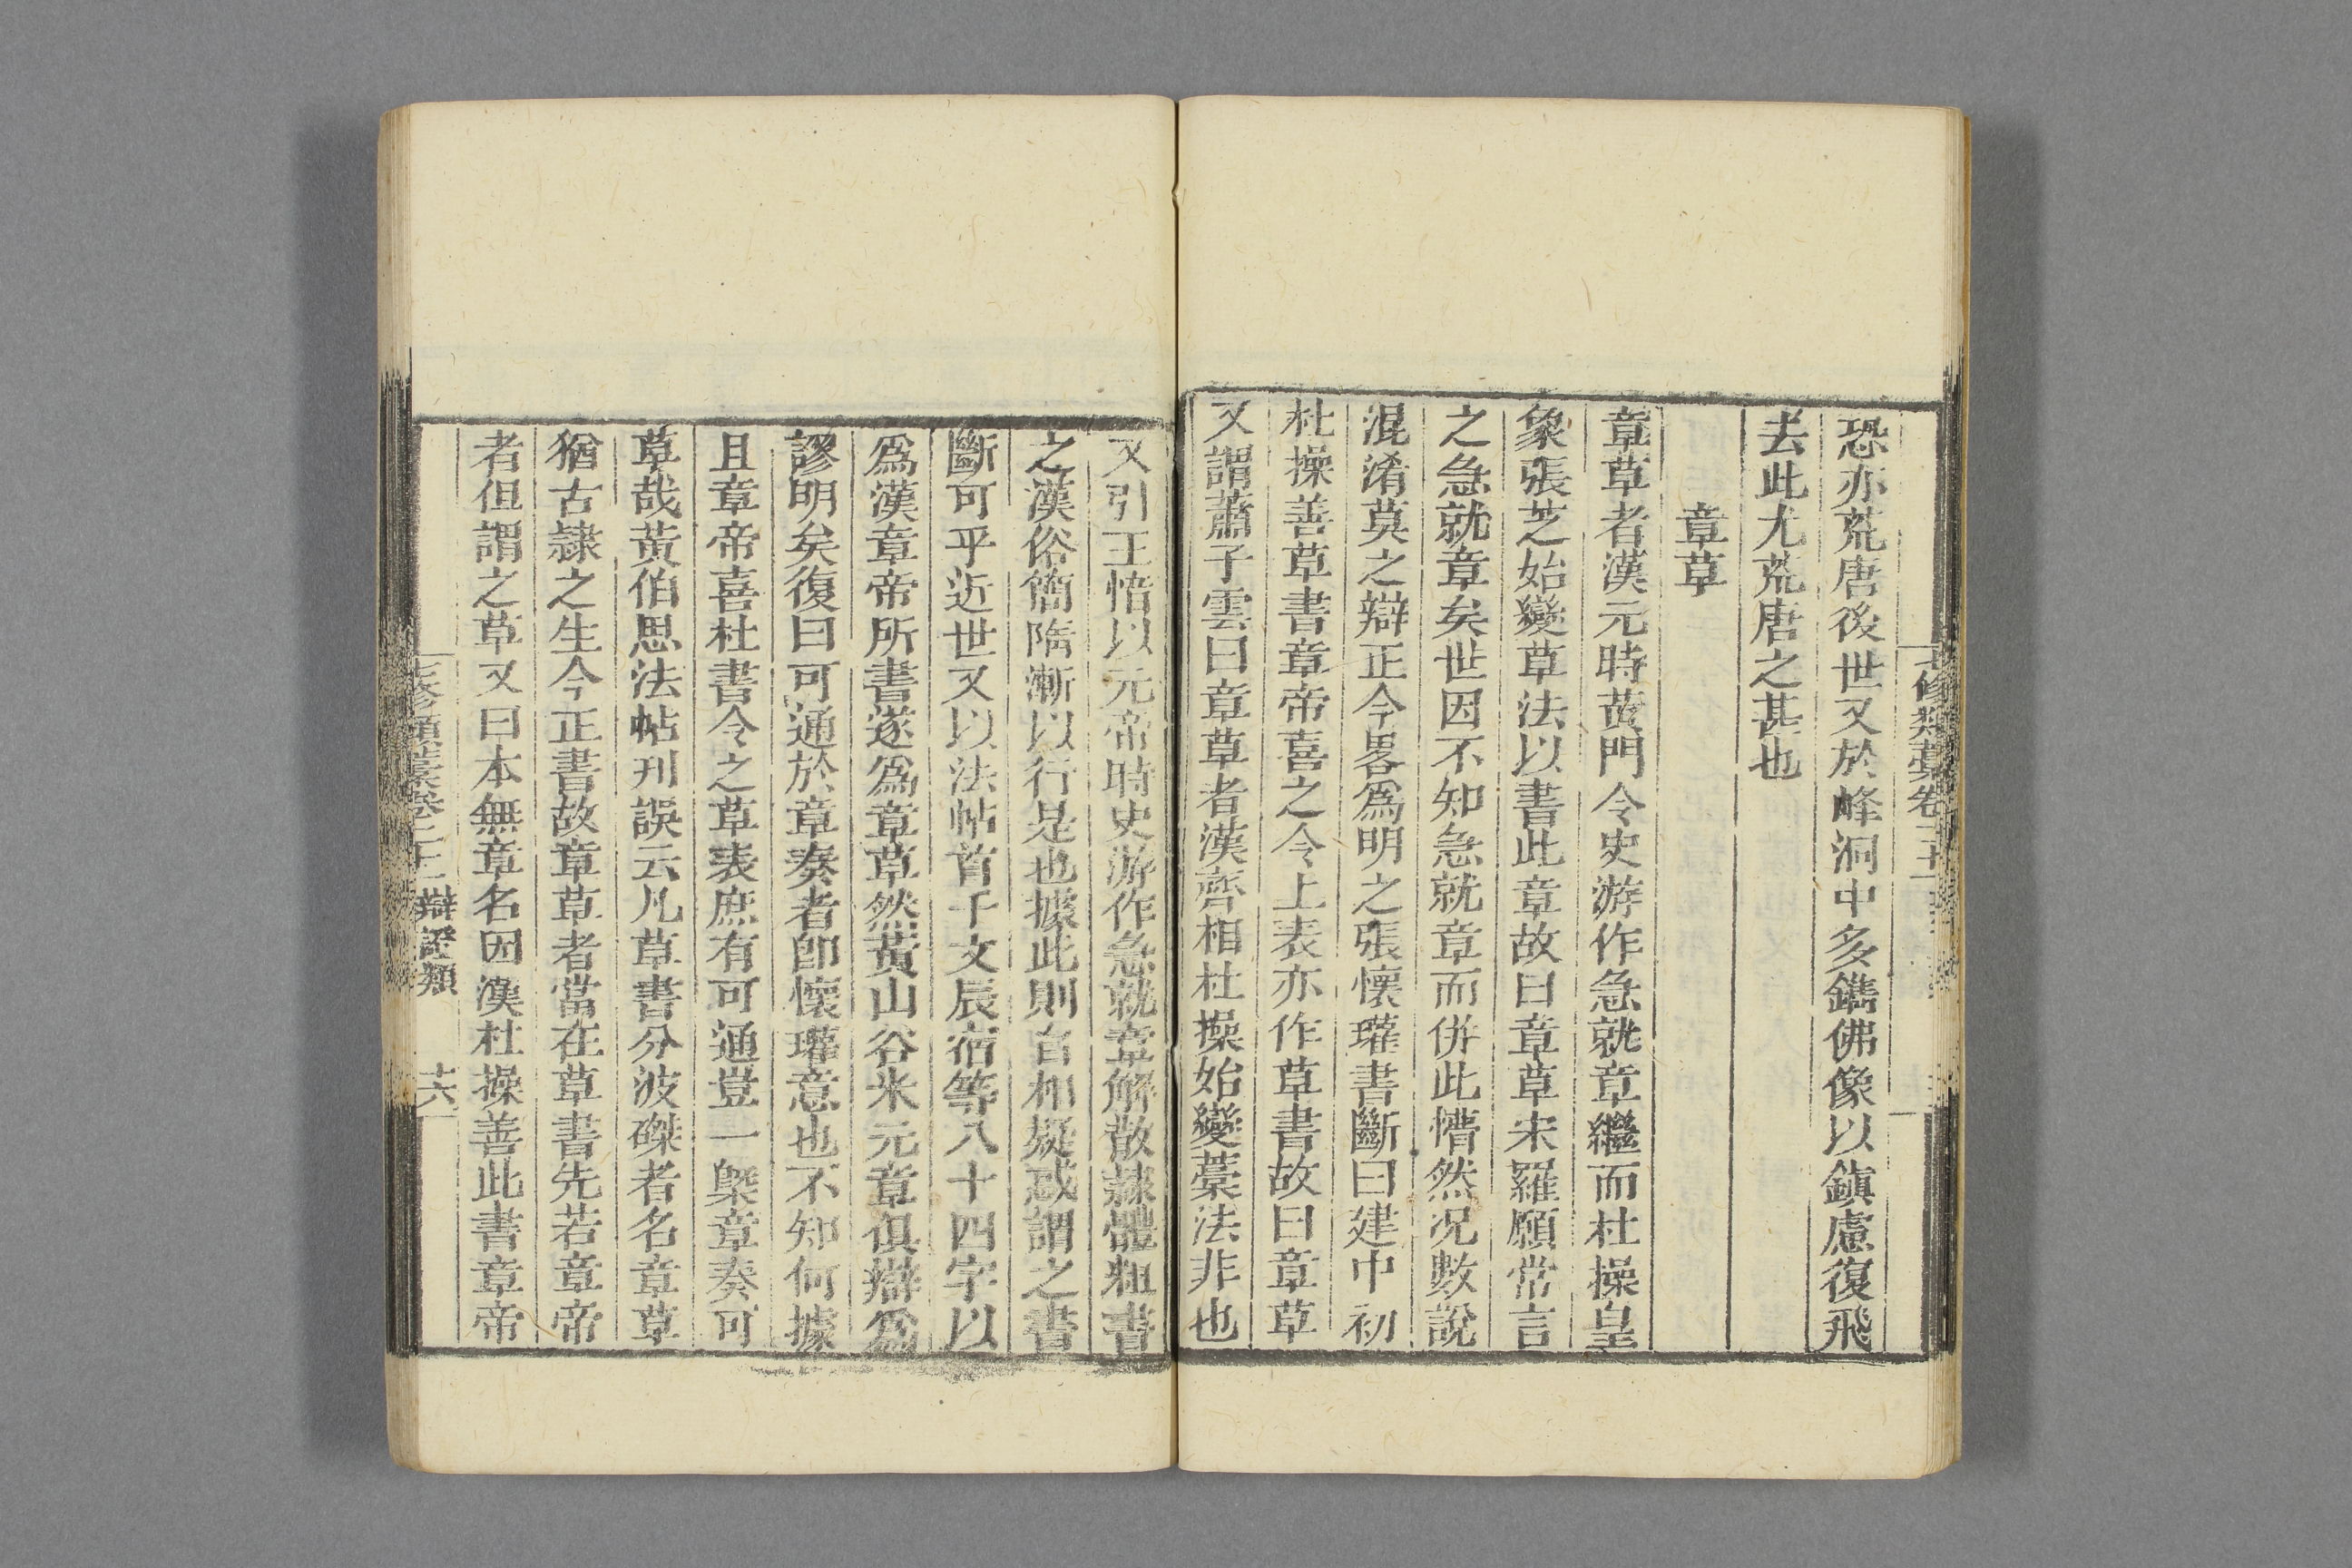 恐亦荒唐後世又於峰洞中多鐫佛像以鎭慮復飛
去此尤荒唐之甚也
章草
章草者漢元時黄門令史游作急就章繼而杜操皇
象張芝始變草法以書此章故曰章草宋羅願常言
之急就章矣世因不知急就章而併此懵然况數說
混淆莫之辯正今畧爲明之張懷瓘書斷曰建中初
杜操善草書章帝喜之令上表亦作草書故曰章草
又謂蕭子雲曰章草者漢齊相杜操始變藁法非也
又引王愔以元帝時史游作急就章解散隸體粗書
之漢俗簡隋漸以行是也據此則自相疑惑謂之書
斷可乎近世又以法帖首千文辰宿等八十四字以
爲漢章帝所書遂爲章草然黃山谷米元章俱辯爲
謬明矣復曰可通於章奏者即懷瓘意也不知何據
且章帝喜杜書令之草表庶有可通豈一槩章奏可
草哉黃伯思法帖刋誤云凡草書分波磔者名章草
猶古隷之生今正書故章草者當在草書先若章帝
者但謂之草又曰本無章名因漢杜操善此書章帝
七修類藁卷二十二 辯證類 十六